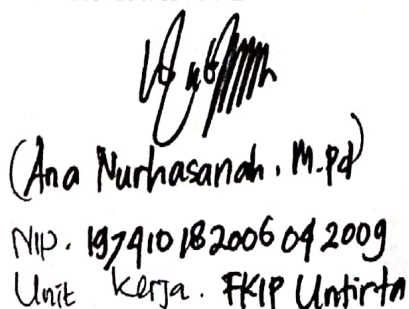 (Ana Nurhasanah, M.Pd)
NIP. 19741018 2006 04 2009
Unit Kerja. FKIP Untirta